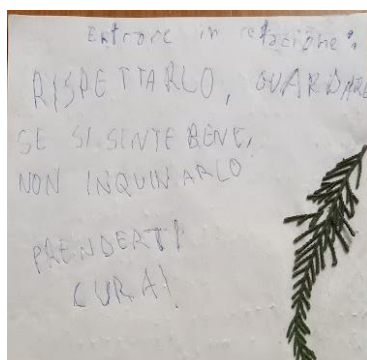 Entrare in relazione:
RISPETTARLO, GUARDARE
SE SI SENTE BENE,
NON INQUINARLO
PRENDERTI
CURA!